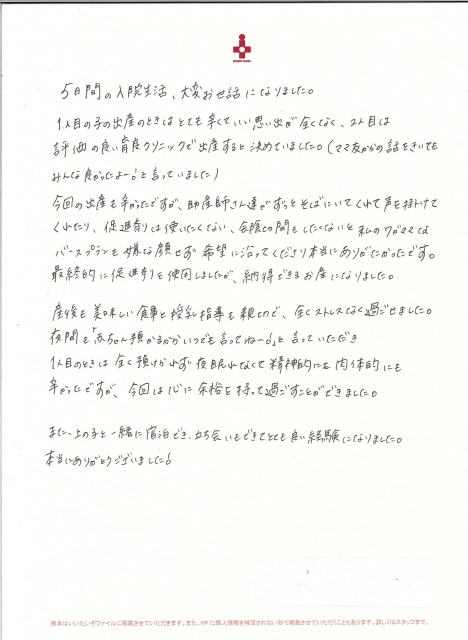 5日間の入院生活、大変お世話になりました。
1人目の子の出産のときはとても辛くていい思い出が全くなく、2人目は
評価の良い育良クリニックで出産すると決めていました。(ママ友からの話をきいても
みんな良かったよー!と言っていました)
今回の出産も辛かったですが、助産師さん達がずっとそばにいてくれて声を掛けて
くれたり、促進剤は使いたくない、会陰切開もしたくないと私のワガママな
バースプランも嫌な顔せず希望に沿ってくださり本当にありがたかったです。
最終的に促進剤を使用しましたが、納得できるお産になりました。
産後も美味しい食事と授乳指導も親切で、全くストレスなく過ごせました。
夜間も「赤ちゃん預かるからいつでも言ってねー!」と言っていただき
1人目のときは全く預けられず夜眠れなくて精神的にも肉体的にも
辛かったですが、今回は心に余裕を持って過ごすことができました。
また、上の子と一緒に宿泊でき、立ち会いもできてとても良い経験になりました。
本当にありがとうございました!
原本はいいたいぞファイルに掲載させていただきます。また、HPに個人情報を特定されない形で掲載させていただくこともあります。詳しくはスタッフまで。